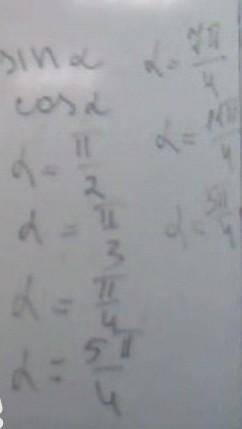 sin α
cos α
α = π/2
α = π/3
α = π/4
α = 5π/4
α = 7π/4
α = 5π/4